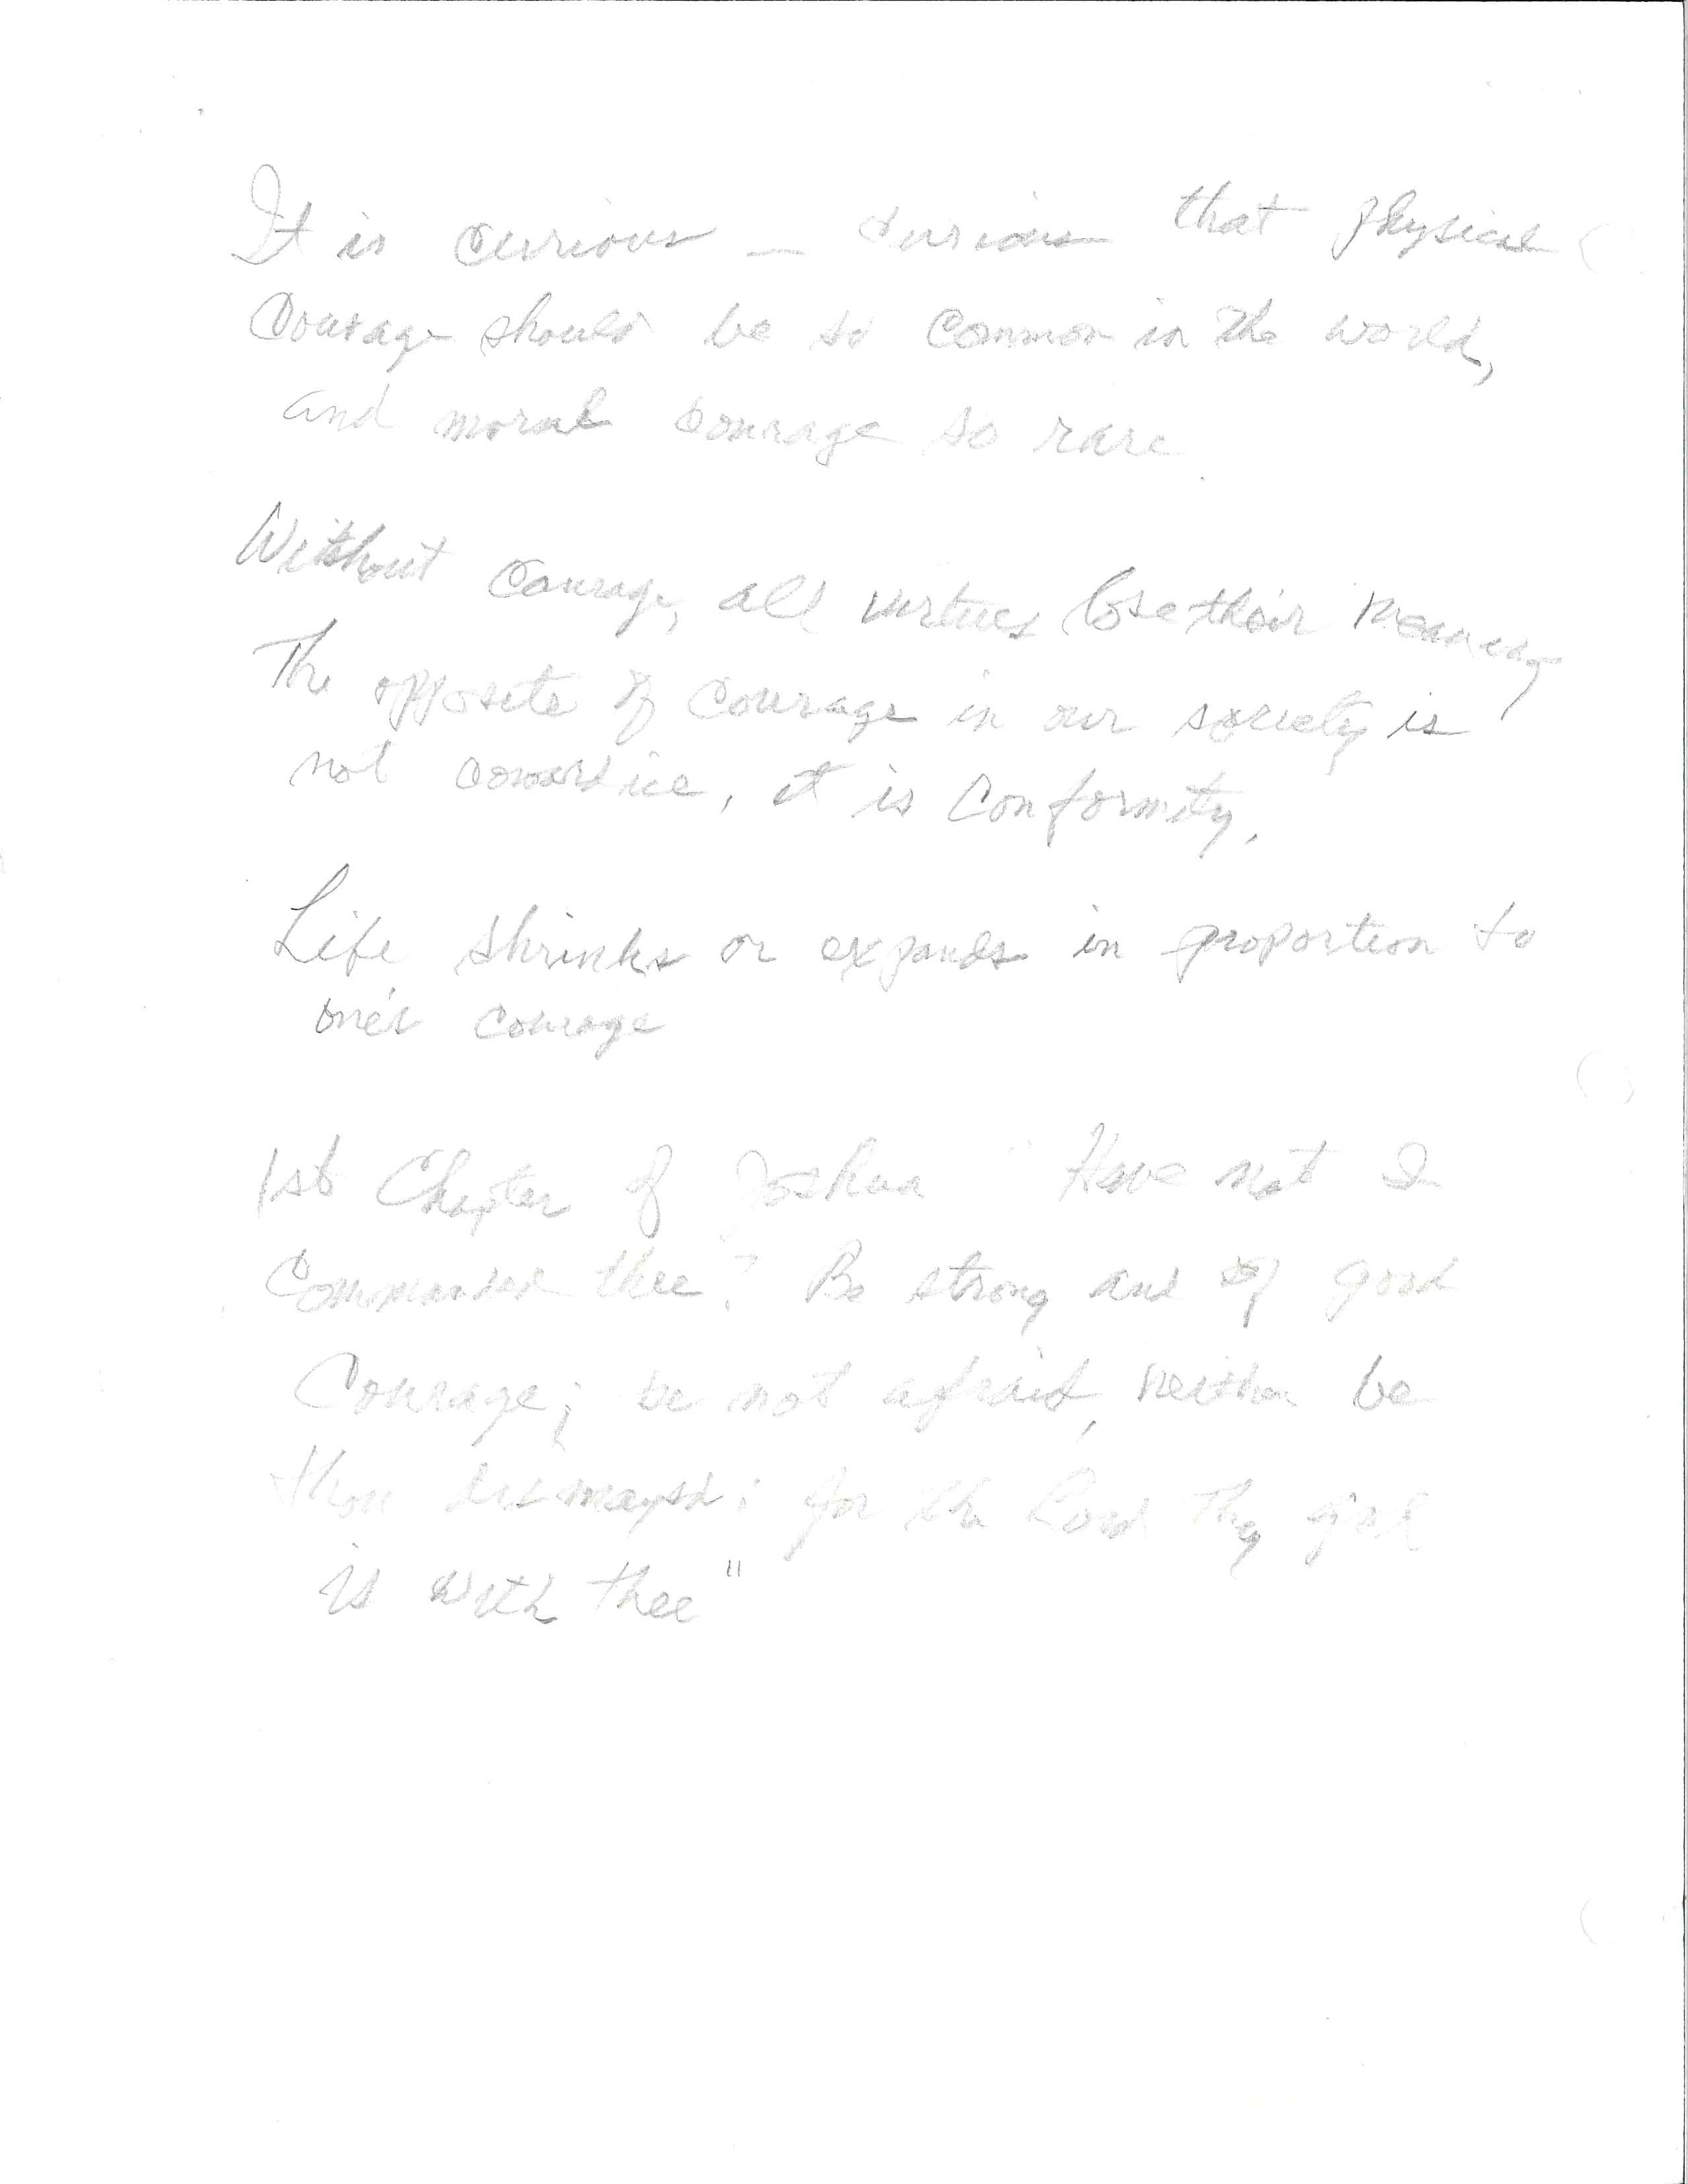 It is curious – curious that physical
Courage should be so common in the world,
and moral courage so rare
Without Courage, all virtues lose their meaning
The opposite of Courage in our society is
not cowardice, it is Conformity.
Life shrinks or expands in proportion to
one's courage
1st Chapter of Joshua " Have not I
Commanded thee? Be strong and of good
Courage; be not afraid, neither be
thou dismayed: for the Lord thy god
is with thee"